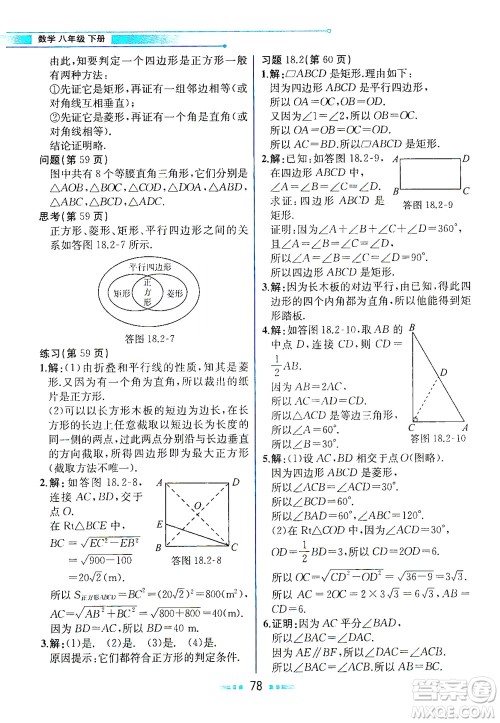 数学 八年级 下册
由此,要知道判定一个四边形是正方形一般可以有
两种方法:
①先证它是矩形,再证它有一组邻边相等(或
对角线互相垂直);
②先证它是菱形,再证它有一个角是直角(或
对角线相等).
结论证明略.
问题(第 59 页)
图中共有 8 个等腰直角三角形,它们分别是
△AOB、△BOC、△COD、△DOA、△ABC、
△BCD、△CDA、△DAB.
思考(第 59 页)
正方形、菱形、矩形、平行四边形之间的关
系如答图 18.2-7 所示.
平行四边形
矩形
正方形
菱形
答图 18.2-7
练习(第 59 页)
1.解:(1)由折叠和平行线的性质,知其为菱
形.又因为有一个角为直角,所以裁出的纸
片是正方形.
(2)可以以长方形木板的短边为边长,在长
边上截取长度等于短边的边长,再在长边的
同一侧的另一端,沿与长方形的长边垂直
的方向截取,所得四边形即为正方形
(截取方法不唯一).
2.解:如答图 18.2-8,
连接 AC,BD,交于
点 O.
在 Rt△BCE 中,
BC=√EC²-EB²
=√900-100
=20√2(m).
答图 18.2-8
A
D
E
O
B
C
AC=√AB²+BC²=√800+800=40(m).
因为 BD=AC,所以 BD=40 m.
3.解:(1)是. (2)是. (3)是. (4)是.
原因提示:它们都符合正方形的判定条件.
习题 18.2(第 60 页)
1.解:▱ABCD 是矩形.理由如下:
因为四边形 ABCD 是平行四边形,
所以 OA=OC,OB=OD.
又因为∠1=∠2,所以 OB=OC.
所以 AC=BD.所以▱ABCD 是矩形.
2.解:已知:如答图 18.2-9,
在四边形 ABCD 中,
∠A=∠B=∠C=∠D.
求证:四边形 ABCD
是矩形.
A
D
B
C
答图 18.2-9
证明:因为∠A+∠B+∠C+∠D=360°,
且∠A=∠B=∠C=∠D,
所以∠A=∠B=∠C=∠D=90°.
所以四边形 ABCD 是矩形.
3.解:能.因为长木板的对边平行,得出
四边形的四个内角都为直角,所以他能得到矩
形踏板.
4.解:如答图 18.2-10,取
AB 的中点 D,连接 CD.
因为∠ACB=90°,
所以 CD=
1/2 AB=AD.
因为 AC=1/2 AB,
所以 AC=CD=AD.
所以△ACD 是等边三角形.
所以∠A=60°.
所以∠B=30°.
B
D
C
A
答图 18.2-10
5.解:(1)设 AC,BD 交于点 O(图略).
因为四边形 ABCD 是菱形,
所以∠BAC=∠ACD=30°.
所以∠BAD=60°.
所以∠ABC=120°.
所以 AC=2×3√3=6√3.
6.证明:因为 AC 平分∠BAD,
所以∠BAC=∠DAC.
因为 AE∥BF,所以∠DAC=∠ACB.
所以∠BAC=∠ACB.
78